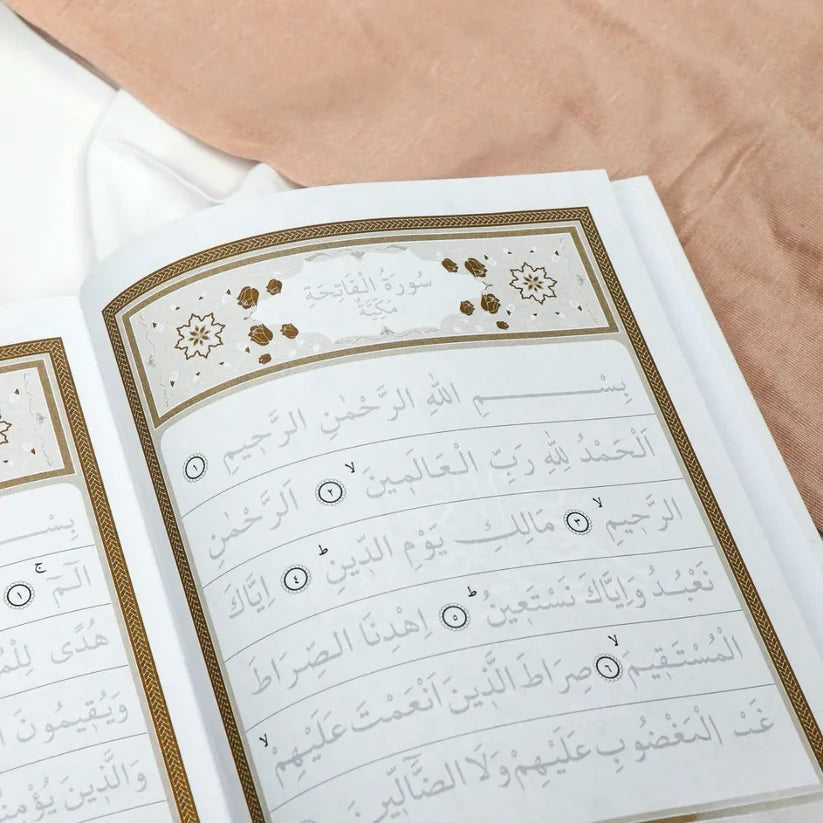 سُورَةُ الْفَاتِحَةِ
مَكِّيَّةٌ
بِسْمِ اللهِ الرَّحْمٰنِ الرَّحِيمِ ١
اَلْحَمْدُ لِلّٰهِ رَبِّ الْعَالَمِينَۙ ٢ اَلرَّحْمٰنِ
الرَّحِيمِۙ ٣ مَالِكِ يَوْمِ الدِّينِۜ ٤ اِيَّاكَ
نَعْبُدُ وَاِيَّاكَ نَسْتَعِينُۜ ٥ اِهْدِنَا الصِّرَاطَ
الْمُسْتَقِيمَۙ ٦ صِرَاطَ الَّذِينَ اَنْعَمْتَ عَلَيْهِمْۙ
الْمَغْضُوبِ عَلَيْهِمْ وَلَا الضَّٓالِّينَ
الٓمٓۚ ١
هُدًى
وَيُقِيمُونَ
وَالَّذِينَ